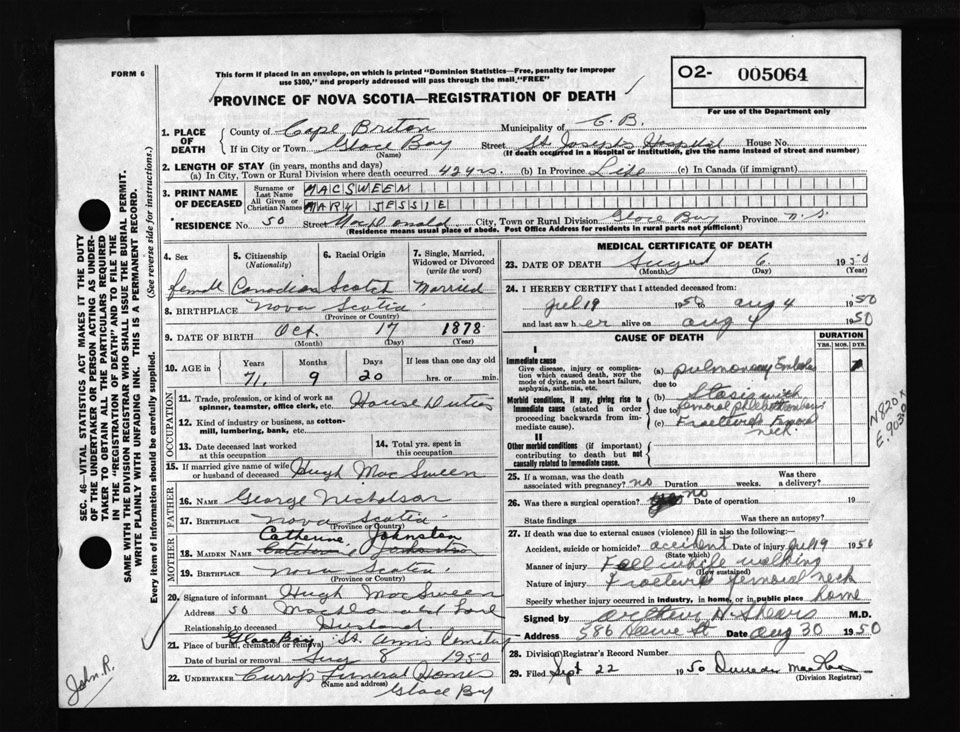 FORM 6
This form if placed in an envelope, on which is printed "Dominion Statistics—Free, penalty for improper
use $300," and properly addressed will pass through the mail "FREE"
O2- 005064
For use of the Department only
PROVINCE OF NOVA SCOTIA—REGISTRATION OF DEATH
1. PLACE OF DEATH
County of Cape Breton Municipality of C. B.
If in City or Town Glace Bay Street St. Josephs Hospital House No.
(Name) (If death occurred in a hospital or institution, give the name instead of street and number)
2. LENGTH OF STAY (in years, months and days)
(a) In City, Town or Rural Division where death occurred 42 yrs. (b) In Province Life (c) In Canada (if immigrant)
3. PRINT NAME OF DECEASED
Surname or Last Name MACSWEEN
All Given or Christian Names MARY JESSIE
RESIDENCE No. 50 Street MacDonald City, Town or Rural Division Glace Bay Province N.S.
(Residence means usual place of abode. Post Office Address for residents in rural parts not sufficient)
4. Sex
female
5. Citizenship (Nationality)
Canadian
6. Racial Origin
Scotch
7. Single, Married, Widowed or Divorced (write the word)
Married
8. BIRTHPLACE Nova Scotia
(Province or Country)
9. DATE OF BIRTH Oct. 17 1878
(Month) (Day) (Year)
10. AGE in Years Months Days If less than one day old
71 9 20 hrs. or min.
OCCUPATION
11. Trade, profession, or kind of work as spinner, teamster, office clerk, etc. House Duties
12. Kind of industry or business, as cotton-mill, lumbering, bank, etc.
13. Date deceased last worked at this occupation
14. Total yrs. spent in this occupation
15. If married give name of wife or husband of deceased Hugh MacSween
FATHER
16. NAME George Nicholson
17. BIRTHPLACE Nova Scotia
(Province or Country)
MOTHER
Catherine Johnston
18. MAIDEN NAME
19. BIRTHPLACE Nova Scotia
(Province or Country)
20. Signature of informant Hugh MacSween
Address 50 MacDonald
Relationship to deceased Husband
21. Place of burial, cremation or removal Glace Bay St. Anns Cemetery
Date of burial or removal Aug 8 1950
22. UNDERTAKER Curry's Funeral Homes
(Name and address)
Glace Bay
MEDICAL CERTIFICATE OF DEATH
23. DATE OF DEATH August 6 1950
(Month) (Day) (Year)
24. I HEREBY CERTIFY that I attended deceased from:
Jul 19 1950 to Aug 4 1950
and last saw her alive on Aug 4 1950
CAUSE OF DEATH
DURATION
YRS. MOS. DYS.
I
Immediate cause
Give disease, injury or complication which caused death, not the mode of dying, such as heart failure, asphyxia, asthenia, etc.
(a) Pulmonary Embolus
due to
Morbid conditions, if any, giving rise to immediate cause (stated in order proceeding backwards from immediate cause).
(b) Stasis with
femoral phlebothrombosis
due to
(c) Fractured Femoral neck.
II
Other morbid conditions (if important) contributing to death but not causally related to immediate cause.
N820x
E.9030
25. If a woman, was the death associated with pregnancy? no Duration weeks. Was there a delivery?
26. Was there a surgical operation? no Date of operation 19
State findings Was there an autopsy?
27. If death was due to external causes (violence) fill in also the following:—
Accident, suicide or homicide? accident Date of injury Jul 19 1950
(State which)
Manner of injury Fell while walking
(How sustained)
Nature of injury Fractured femoral neck
Specify whether injury occurred in industry, in home, or in public place home
Signed by Arthur H. Shears M.D.
Address 586 St Date Aug 30 1950
28. Division Registrar's Record Number
29. Filed Sept 22 1950 Duncan
(Division Registrar)
SEC. 46—VITAL STATISTICS ACT MAKES IT THE DUTY
OF THE UNDERTAKER OR PERSON ACTING AS UNDER-
TAKER TO OBTAIN ALL THE PARTICULARS REQUIRED
IN THE "REGISTRATION OF DEATH" AND TO FILE THE
SAME WITH THE DIVISION REGISTRAR WHO SHALL ISSUE THE BURIAL PERMIT.
WRITE PLAINLY WITH UNFADING INK. THIS IS A PERMANENT RECORD.
Every item of information should be carefully supplied. (See reverse side for instructions.)
John R.